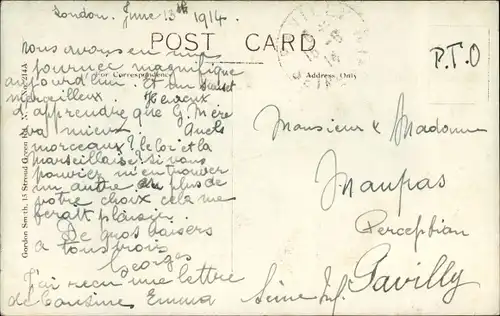 London. June 13th 1914.
POST CARD
P.T.O
For Correspondence
Address Only
Nous avons eu une
journée magnifique
aujourd'hui. Et un sunset
merveilleux. Heureux
d'apprendre que G. Mère
va mieux. Quels
morceaux? le loi et la
Marseillaise? si vous
pouviez m'en trouver
un autre de plus de
votre choix cela me
ferait plaisir.
De gros baisers
a tous trois
Georges
J'ai reçu une lettre
de Cousine Emma
Monsieur & Madame
Maupas
Perception
Pavilly
Seine Inf.
Gordon Smith, 15 Stroud Green Rd.